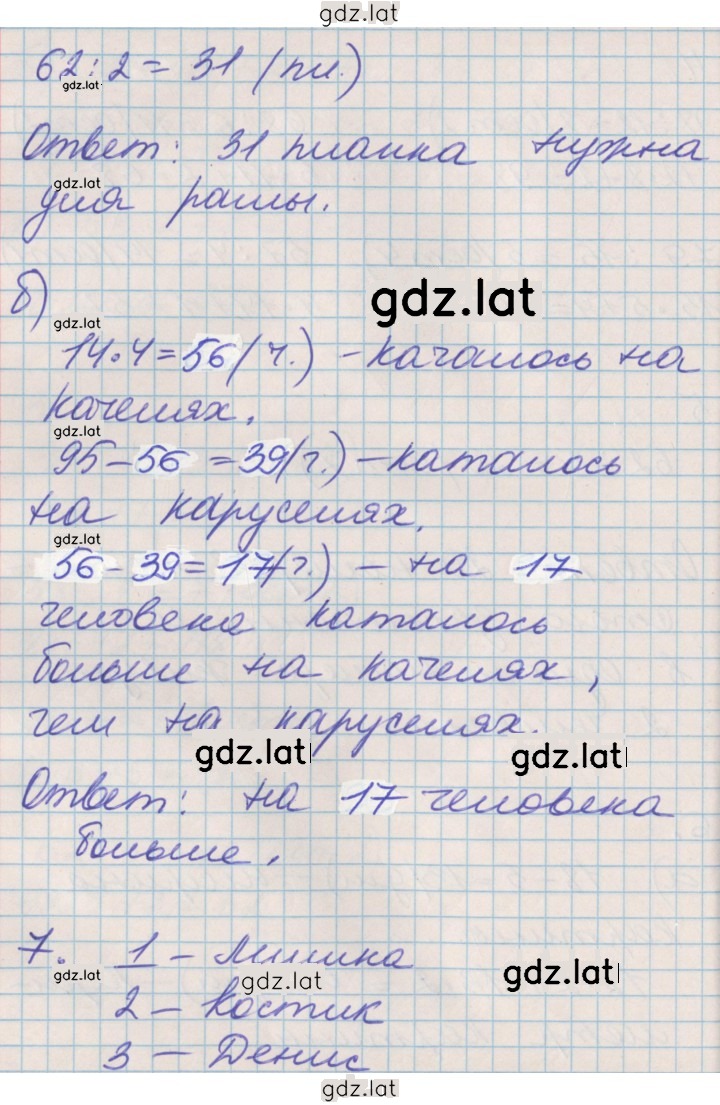 gdz.lat
62:2=31 (пл.)
gdz.lat
Ответ: 31 планка нужна
gdz.lat
для рамы.
б)
gdz.lat
gdz.lat
14·4=56(ч.) – качалось на
качелях.
gdz.lat
95–56 =39(ч.) – каталось
на каруселях.
gdz.lat
56–39=17(ч.) – на 17
человека каталось
больше на качелях,
чем на каруселях.
gdz.lat gdz.lat
Ответ: на 17 человека
больше.
7. 1 – Мишка
gdz.lat gdz.lat gdz.lat
2 – Костик
3 – Денис
gdz.lat